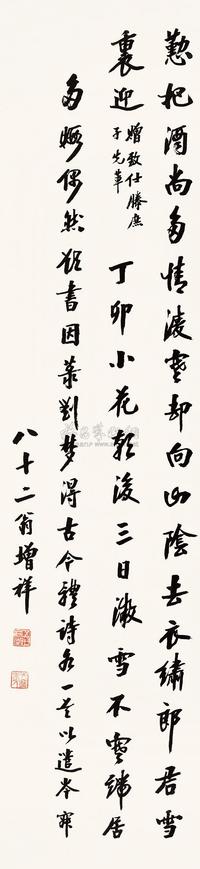 懃把酒尚多情凌寒却向山陰去衣繡郎君雪
裏迎 贈致仕滕庶
子先輩 丁卯小花朝後三日微雪不寒端居
多暇偶然欲書因录劉夢得古今體詩各一首以遣岑寂
八十二翁增祥